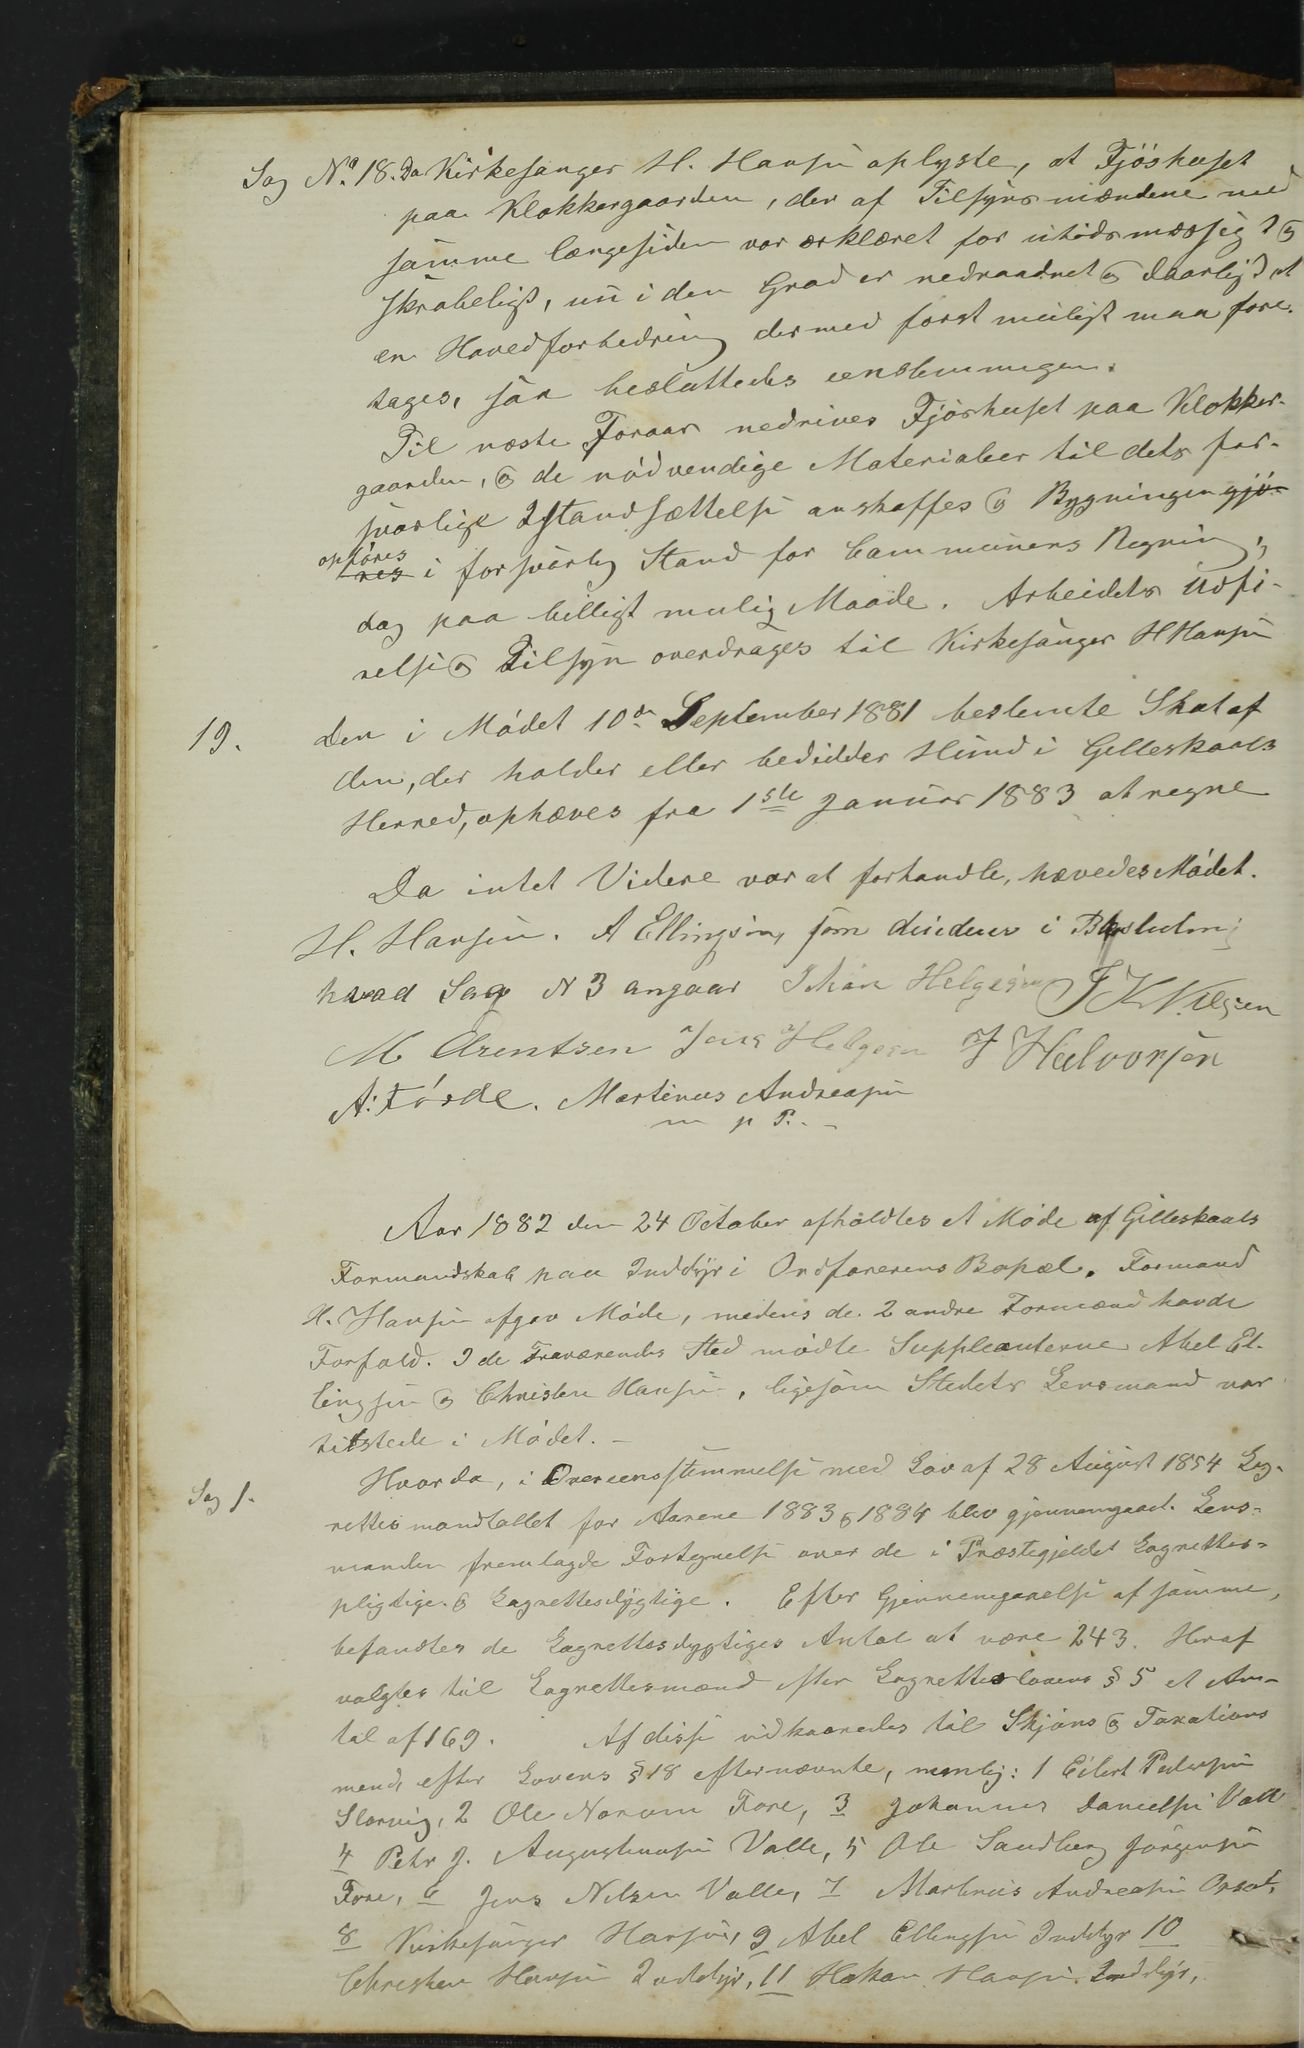 Sag No. 18. Da Kirkesanger H. Hansen oplyste, at Fjøshuset
paa Klokkergaarden, der af Tilsynsmændene med
samme længesiden var erklæret for utidsmæssig &
skrøbeligt, nu i den Grad er nedraadnet & daarligt, at
en Hovedforbedring dermed først muligt maa fore-
tages, saa besluttedes eenstemmigen:
Til næste Foraar nedrives Fjøshuset paa Klokker-
gaarden, & de nødvendige Materialier til dets for-
svarlige Istandsættelse anskaffes & Bygningen gjø-
opføres
res i forsvarlig Stand for Communens Regning,
dog paa billigst mulig Maade. Arbeidets Udfø-
relse & Tilsyn overdrages til Kirkesanger H Hansen
19. Den i Mødet 10de September 1881 bestemte Skat af
den, der holder eller besidder Hund i Gilleskaals
Herred, ophæves fra 1ste Januar 1883 at regne
Da intet Videre var at forhandle, hævedes Mødet.
H. Hansen. A Ellingsen, som dissiderer i Beslutning
hvad Sag N 3 angaar Johan Helgesen J K Nilsen
M. Arentsen Jens Helgesen J Halvorsen
A: Førde. Martinus Andreasen
m p P.
Aar 1882 den 24 October afholdtes et Møde af Gilleskaals
Formandskab paa Inddyr i Ordførerens Bopæl. Formand
H. Hansen afgav Møde, medens de 2 andre Formænd havde
Forfald. I de Fraværendes Sted mødte Suppleanterne Abel El-
lingsen & Christen Hansen, ligesom Stedets Lensmand var
tilstede i Mødet.
Sag 1. Hvorda, i Overeensstemmelse med Lov af 28 August 1854 Lag-
rettesmandtallet for Aarene 1883 & 1884 blev gjennemgaaet. Lens-
manden fremlagde Fortegnelse over de i Præstegjeldet Lagrettes-
pligtige & Lagrettesdygtige. Efter Gjennemgaaelse af samme,
befandtes de Lagrettesdygtiges Antal at være 243. Heraf
valgtes til Lagrettesmænd efter Lagretteslovens § 5 et An-
tal af 169. Af disse udkaaredes til Skjøns & Taxations
mend, efter Lovens § 18 efternævnte, nemlig: 1 Eilert Pedersen
Storvig, 2 Ole Norum Fore, 3 Johannes Danielsen Valle
4 Petr J. Augustinusen Valle, 5 Ole Sandberg Jørgensen
Fore, 6 Jens Nilsen Valle, 7 Martinus Andreasen
8 Kirkesanger Hansen, 9 Abel Ellingsen Inddyr 10
Christen Hansen Inddyr, 11 Hakon Hansen Inddyr,